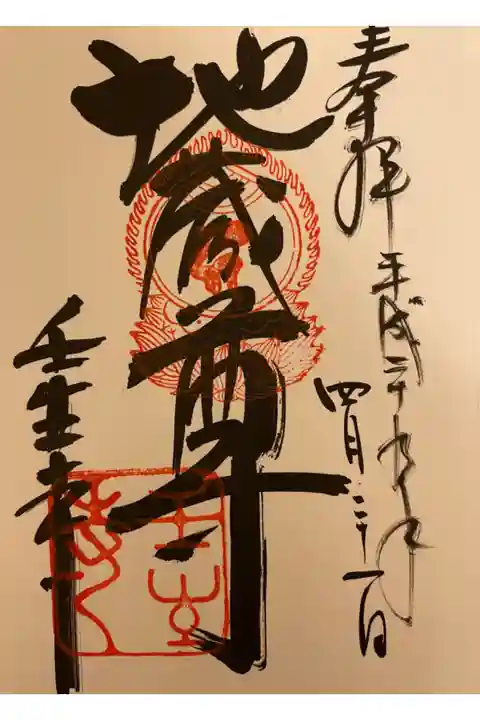 奉拝 平成二十九年
四月二十一日
地蔵尊
壬生寺